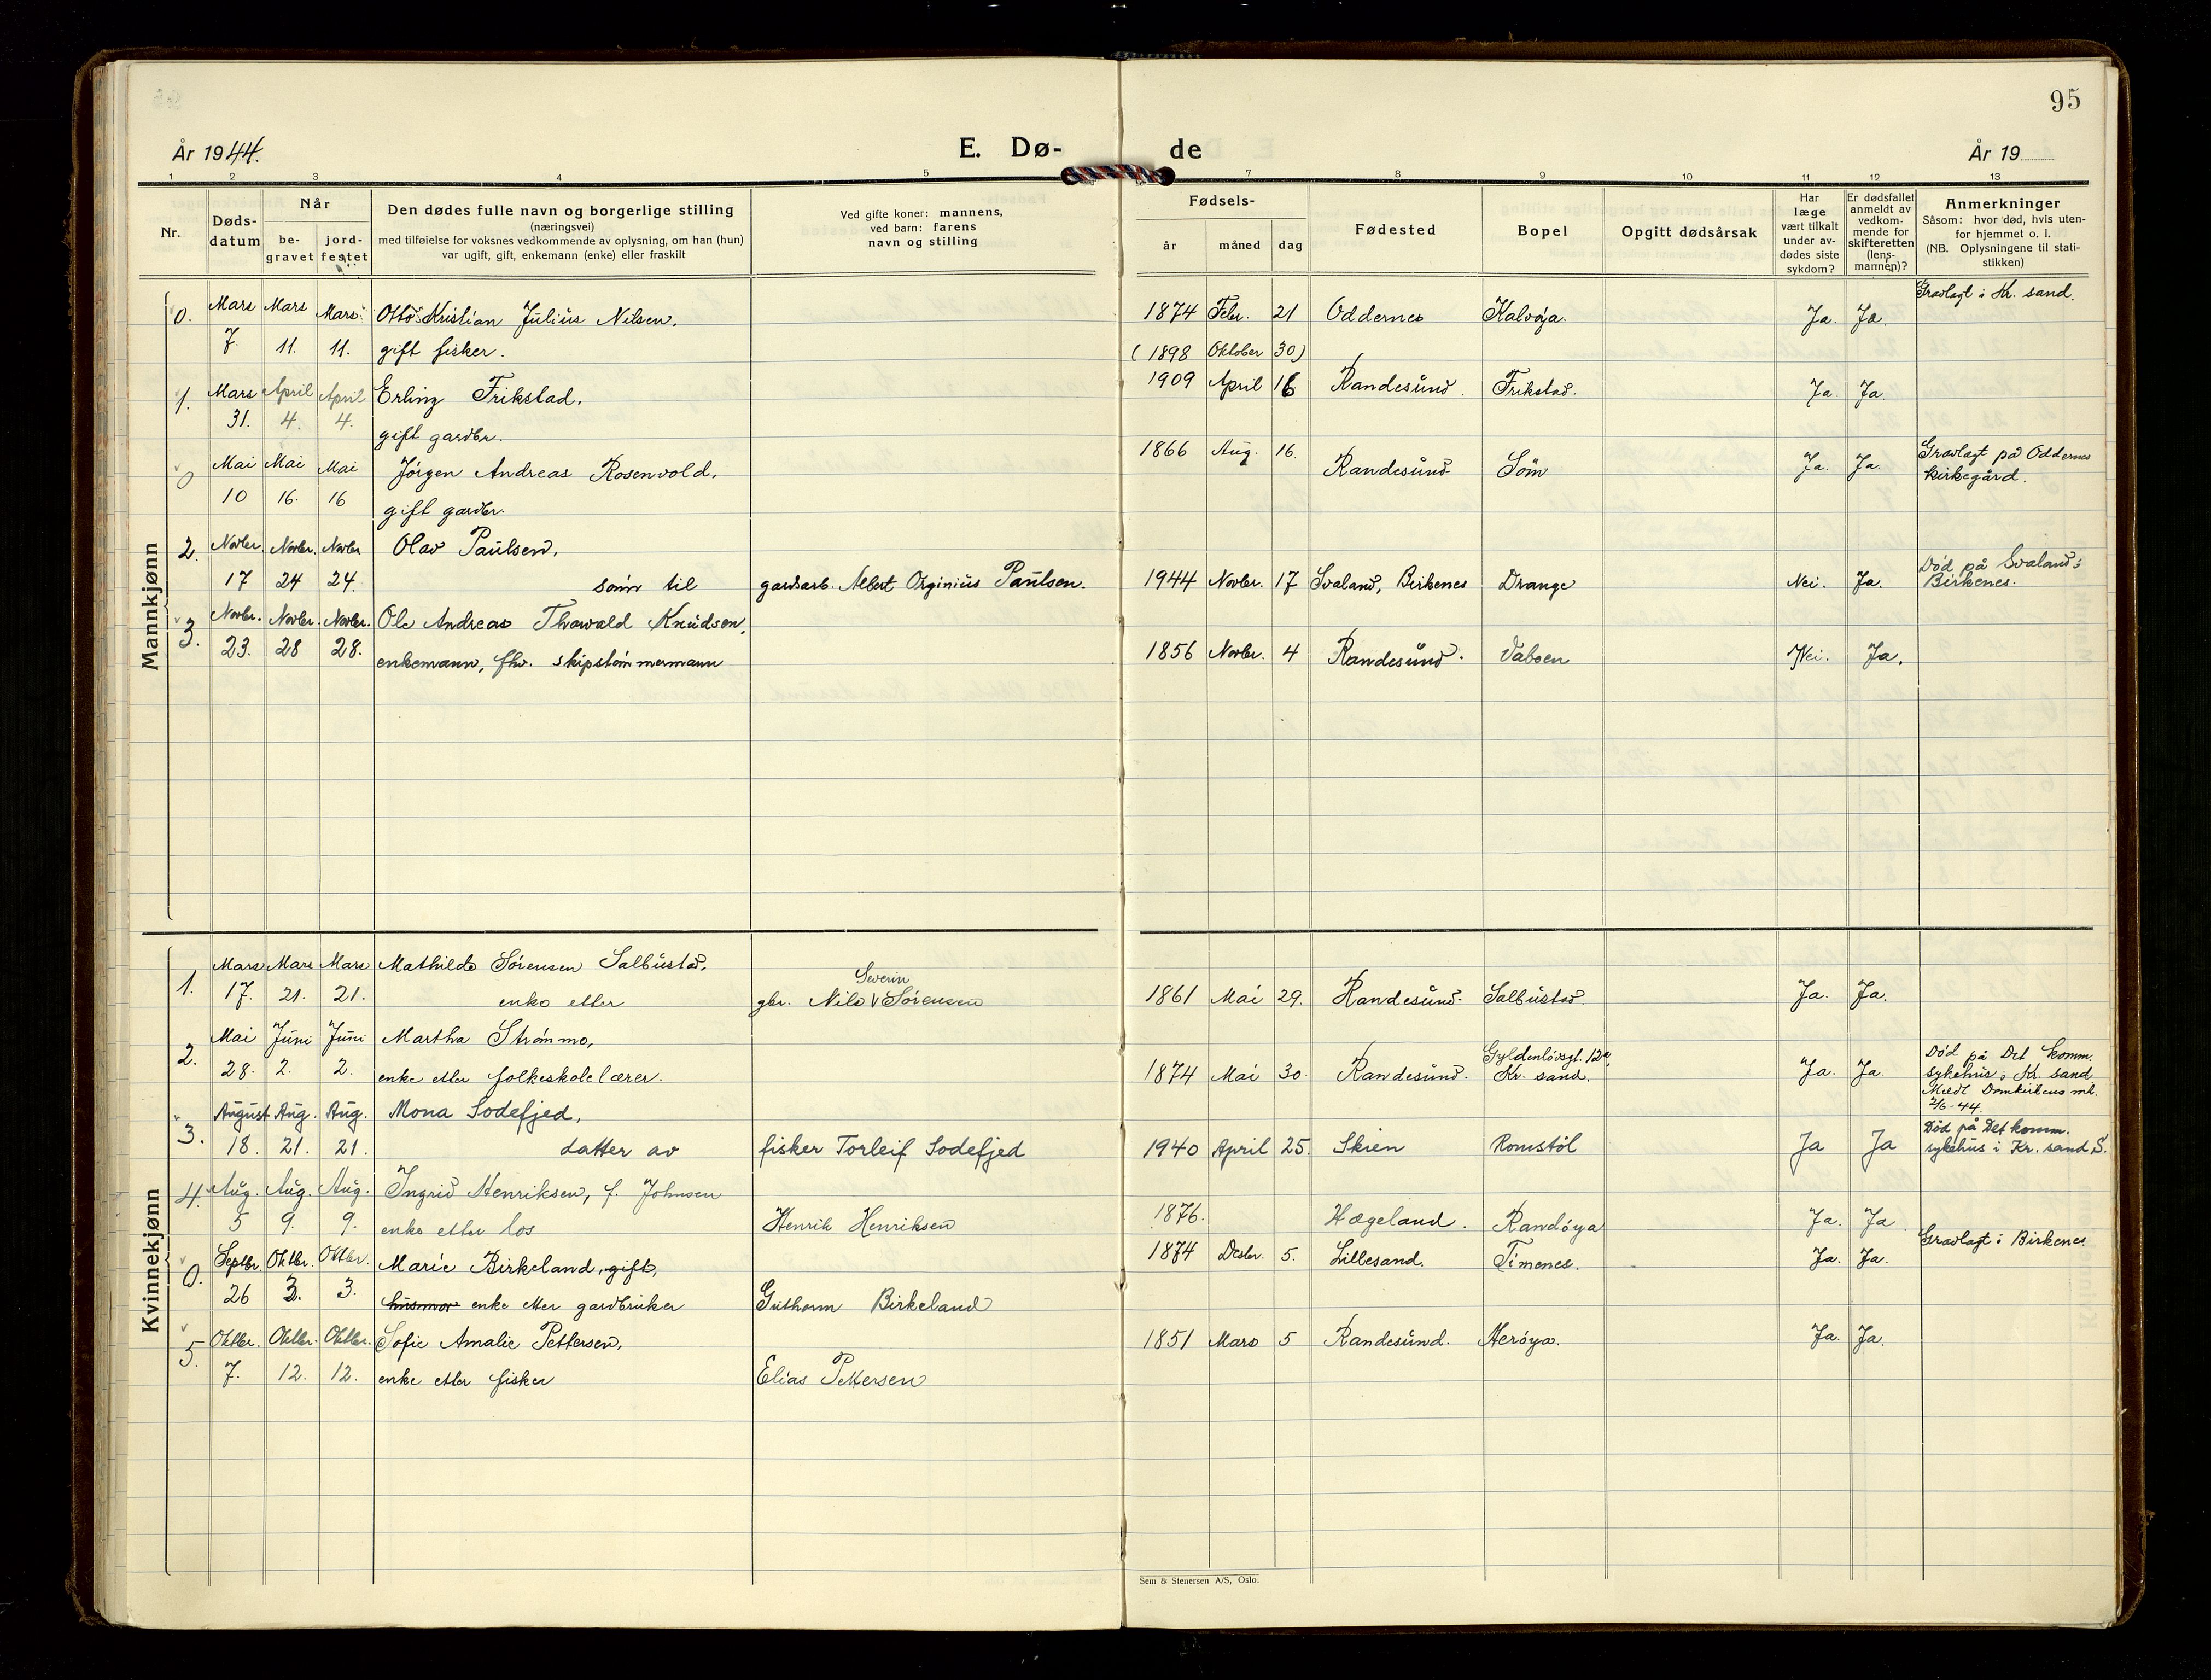 95
År 1944.
E. Dø-
de
År 19
1 2 3 4 5 7 8 9 10 11 12 13
Nr.
Døds-
datum
Når
be-
gravet
jord-
festet
Den dødes fulle navn og borgerlige stilling
(næringsvei)
med tilføielse for voksnes vedkommende av oplysning, om han (hun)
var ugift, gift, enkemann (enke) eller fraskilt
Ved gifte koner: mannens,
ved barn: farens
navn og stilling
Fødsels-
år måned dag
Fødested
Bopel
Opgitt dødsårsak
Har
læge
vært tilkalt
under av-
dødes siste
sykdom?
Er dødsfallet
anmeldt av
vedkom-
mende for
skifteretten
(lens-
mannen)?
Anmerkninger
Såsom: hvor død, hvis uten-
for hjemmet o. l.
(NB. Oplysningene til stati-
stikken)
Mannkjønn
0. Mars Mars Mars Otto Kristian Julius Nilsen, 1874 Febr. 21 Oddernes Kalvøya. Ja. Ja. Gravlagt i Kr. sand.
7. 11. 11. gift fisker. (1898 Oktober 30)
1. Mars April April Erling Frikstad, 1909 April 16 Randesund. Frikstad. Ja. Ja.
31. 4. 4. gift gardbr.
0 Mai Mai Mai Jörgen Andreas Rosenvold, 1866 Aug. 16. Randesund Söm Ja. Ja. Gravlagt på Oddernes
10 16. 16 gift gardbr. kirkegård.
2. Novbr. Novbr. Novbr Olav Paulsen,
17 24 24. sønn til gardsarb. Albert Orginius Paulsen. 1944 Novbr. 17 Svaland, Birkenes Drange Nei. Ja. Död på Svaland i
Birkenes.
3. Novbr. Novbr. Novbr. Ole Andreas Thorvald Knudsen,
23. 28 28. enkemann, fhv. skipstömmermann 1856 Novbr. 4 Randesund. Vaboen Nei. Ja.
Kvinnekjønn
1. Mars Mars Mars Mathilde Sörensen Salbustad,
Severin
17. 21. 21. enke etter gbr. Nils V Sörensen 1861 Mai 29. Randesund. Salbustad. Ja. Ja.
2. Mai Juni Juni Martha Strømme, Gyldenlövsgt. 12a
28. 2. 2. enke etter folkeskolelærer. 1874 Mai 30. Randesund. Kr. sand. Ja. Ja. Död på Det komm.
sykehus i Kr. sand
Meldt Domkirkens mk.
2/6-44.
3. August Aug. Aug. Mona Sodefjed,
18. 21. 21. datter av fisker Torleif Sodefjed 1940 April 25. Skien Romstöl Ja Ja Död på Det komm.
sykehus i Kr. sand S.
4. Aug. Aug. Aug. Ingrid Henriksen, f. Johnsen
5 9. 9. enke etter los Henrik Henriksen 1876. Hægeland. Randøya Ja. Ja
0. Septbr. Oktbr. Oktbr. Marie Birkeland, gift, 1874 Desbr. 5. Lillesand. Timenes. Ja. Ja. Gravlagt i Birkenes
26 3. 3. husmor enke etter gardbruker Guthorm Birkeland
5. Oktbr. Oktbr. Oktbr. Sofie Amalie Pettersen, 1851 Mars 5 Randesund. Herøya. Ja. Ja.
7. 12. 12. enke etter fisker Elias Pettersen
Sem & Stenersen A/S, Oslo.